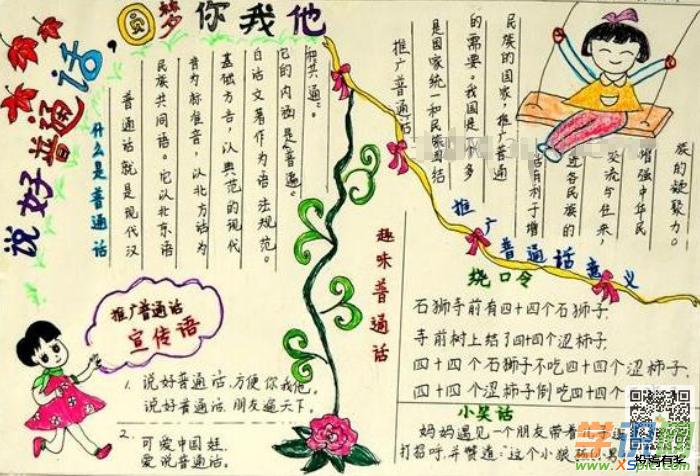 说好普通话,圆梦你我他
什么是普通话
普通话就是现代汉
民族共同语。它以北京语
音为标准音,以北方话为
基础方言,以典范的现代
白话文著作为语法规范。
它的内涵是“普遍”
和共通。
推广普通话
是国家统一和民族团结
的需要。我国是 多
民族的国家,推广普通
话有利于增
进各民族的
交流与往来,
增强中华民
族的凝聚力。
推广普通话意义
推广普通话
宣传语
1、说好普通话,方便你我他。
说好普通话,朋友遍天下。
2、可爱中国娃,
爱说普通话。
趣味普通话
绕口令
石狮寺前有四十四个石狮子,
寺前树上结了四十四个涩柿子,
四十四个石狮子不吃四十四个涩柿子,
四十四个涩柿子倒吃四十四个
小笑话
妈妈遇见一个朋友带着
打招呼,并赞道:“这个小
投稿有奖